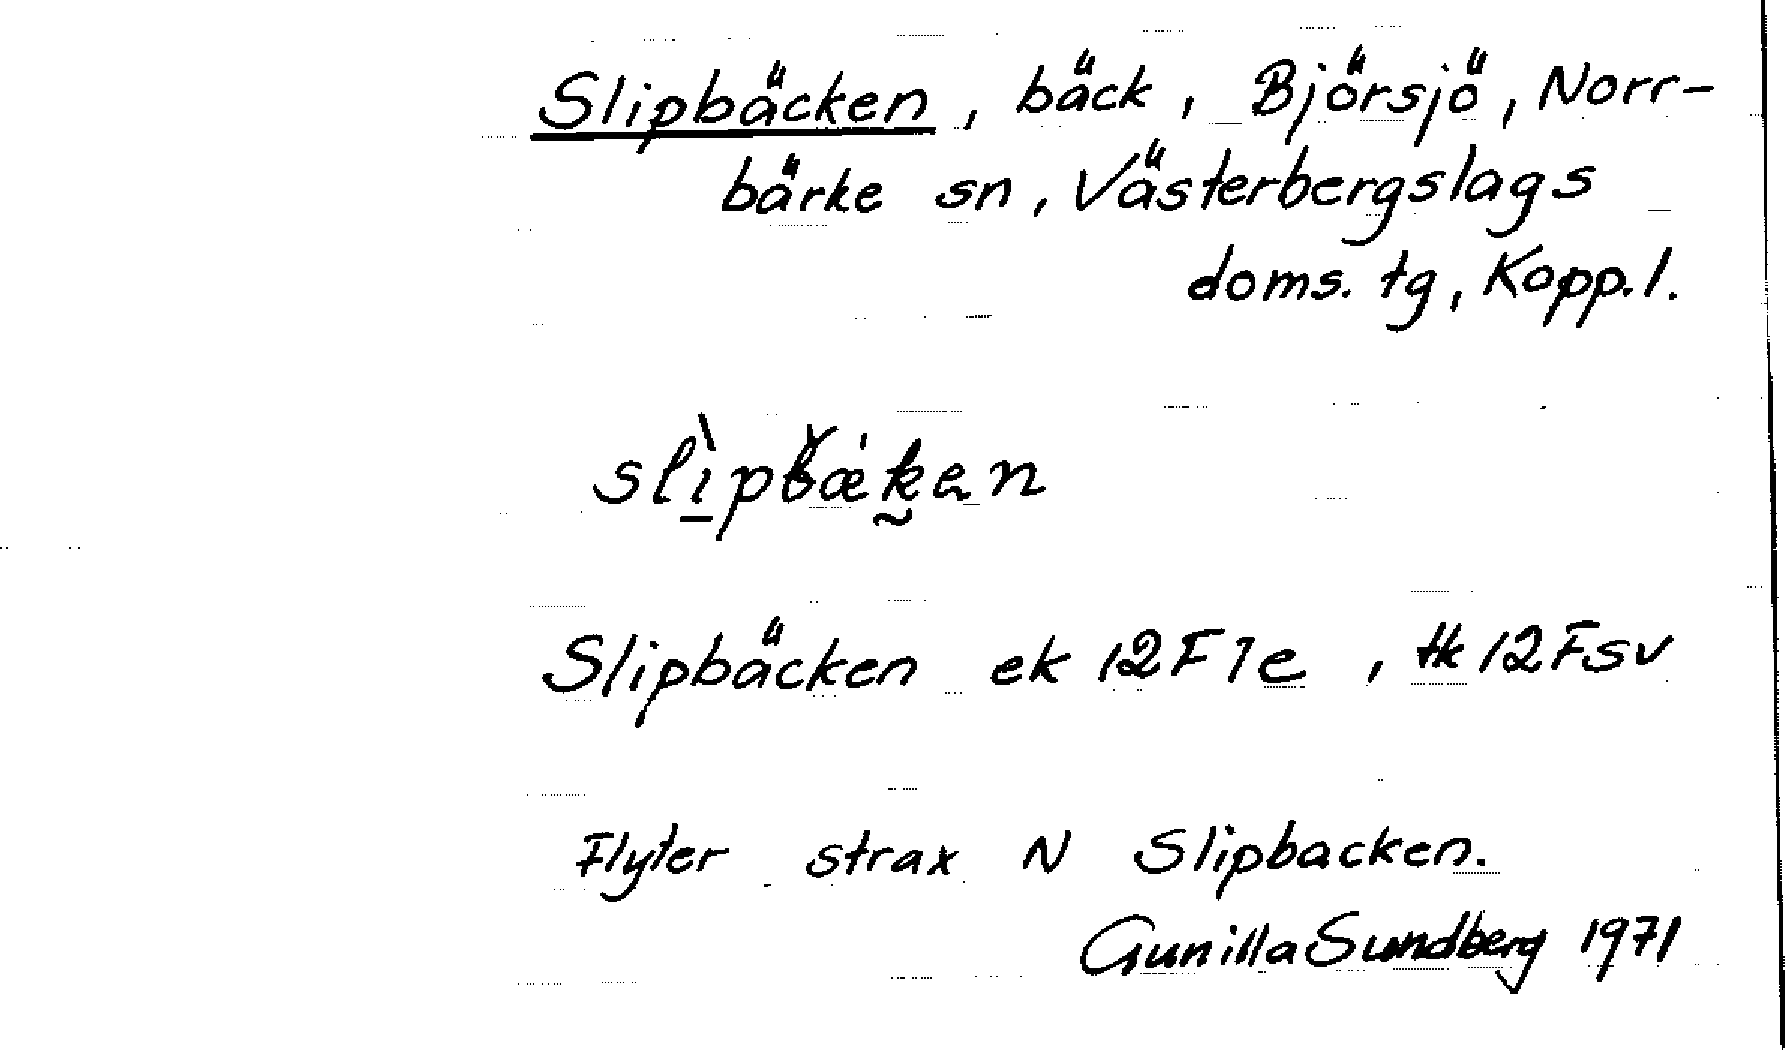 Slipbäcken, bäck, Björsjö, Norr-
bärke sn, Västerbergslags
doms. tg, Kopp.l.
Slipbäcken ek 12F1e, tk 12Fsv
Flyter strax N Slipbacken.
Gunilla Sundberg 1971